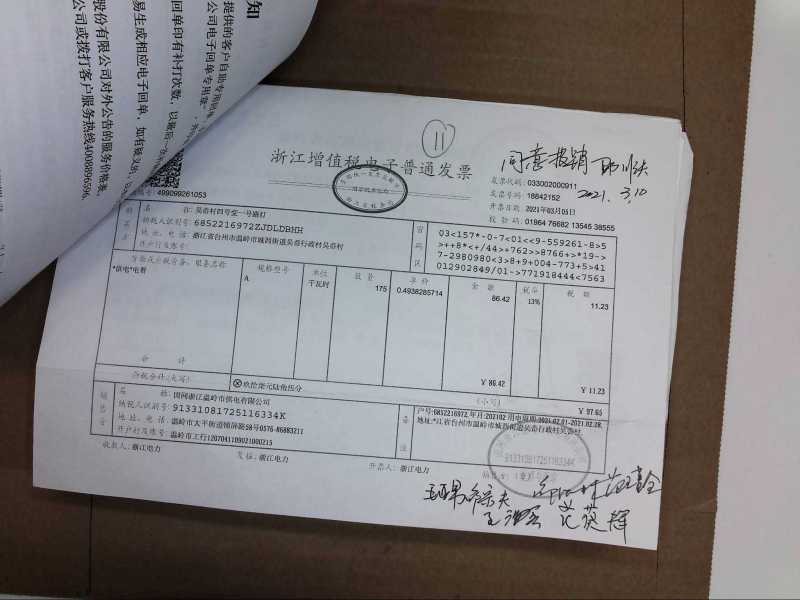 知
提供的客户自助专用回单
公司电子回单专用章"
回单印有补打次数，以最后一次
易生成相应电子回单，如有疑义的，以
股份有限公司对外公告的服务价格表。
公司或拨打客户服务热线4008896596,
11
浙江增值税电子普通发票
同意报销
发票代码: 033002000911
发票号码: 18842152
2021. 3.10
开票日期: 2021年03月05日
校验码: 01964 76682 13545 38555
499099261053
购买方
名称: 吴岙村四号堂一号路灯
纳税人识别号: 6852216972ZJDLDBHH
地址、电话: 浙江省台州市温岭市城西街道吴岙行政村吴岙村
开户行及账号:
密码区
03<157*-0-7<01<<9-559261-8>5
>++8*<+/44>+762>>8766+>*19->
7-2980980<3>8+9+004-773+5>41
012902849/01->771918444<7563
货物或应税劳务、服务名称 规格型号 单位 数量 单价 金额 税率 税额
*供电*电费 A 千瓦时 175 0.4938285714 86.42 13% 11.23
合计 ¥ 86.42 ¥ 11.23
价税合计(大写) ⊗玖拾柒元陆角伍分 (小写) ¥ 97.65
销售方
名称: 国网浙江温岭市供电有限公司
纳税人识别号: 91331081725116334K
地址、电话: 温岭市太平街道横湖路58号0576-86883211
开户行及账号: 温岭市工行1207041109021000215
备注
户号:6852216972,年月:202102 用电周期:2021.02.01-2021.02.28,
地址:*江省台州市温岭市城西街道吴岙行政村吴岙村.
收款人: 浙江电力 复核: 浙江电力 开票人: 浙江电力 销售方: (章)
91331081725116334K